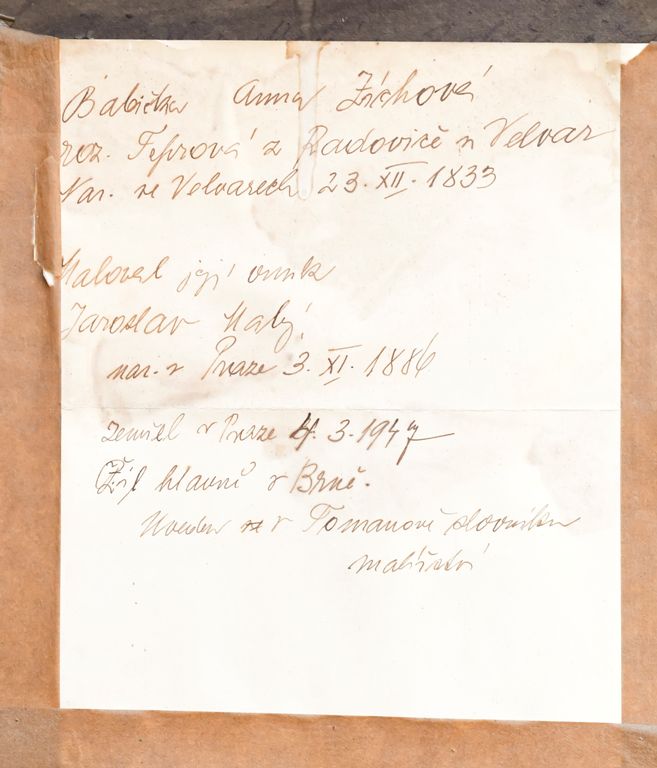 Babička Anna Zíchová
roz. Teprová z Radovič n Velvar
Nar. ve Velvarech 23. XII. 1833
Maloval její vnuk
Jaroslav Malý
nar. v Praze 3. XI. 1886
zemřel v Praze 4. 3. 1947
Žil hlavně v Brně.
Uveden v Tomanově slovníku
malířství